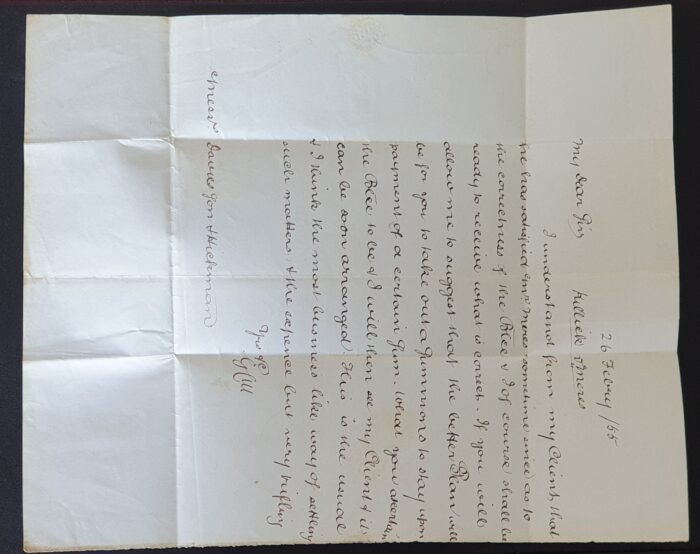 26 Febury /55
Killick v Meres
My dear Sirs
I understand from my Client that
he has satisfied Mr Meres sometime since as to
the correctness of the Balce & I of course shall be
ready to receive what is correct. If you will
allow me to suggest that the better Plan will
be for you to take out a Summons to stay upon
payment of a certain Sum. What you ascertain
the Balce to be & I will then see my Client & it
can be soon arranged. This is the usual
& I think the most business like way of settling
such matters & the expence but very trifling
Yrs &c
Messrs & Hickman